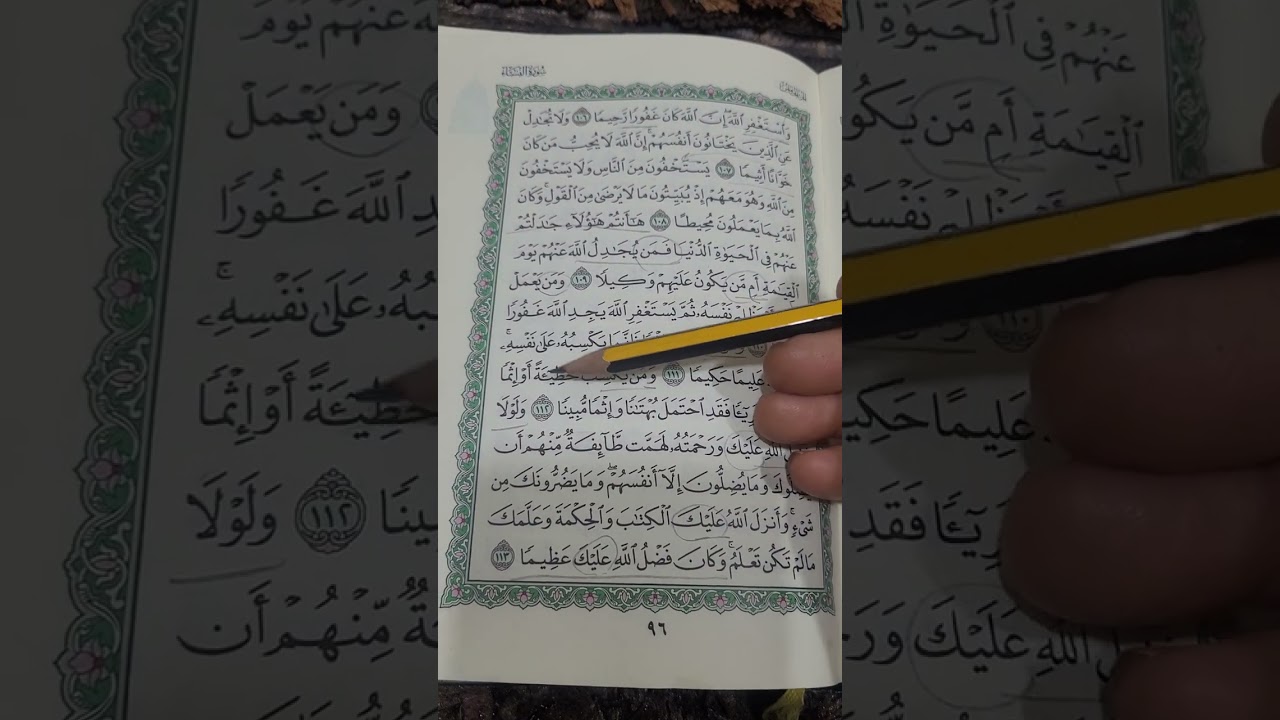 سورة النساء
وَاسْتَغْفِرِ اللَّهَ إِنَّ اللَّهَ كَانَ غَفُورًا رَّحِيمًا ١٠٦ وَلَا تُجَادِلْ
عَنِ الَّذِينَ يَخْتَانُونَ أَنفُسَهُمْ إِنَّ اللَّهَ لَا يُحِبُّ مَن كَانَ
خَوَّانًا أَثِيمًا ١٠٧ يَسْتَخْفُونَ مِنَ النَّاسِ وَلَا يَسْتَخْفُونَ
مِنَ اللَّهِ وَهُوَ مَعَهُمْ إِذْ يُبَيِّتُونَ مَا لَا يَرْضَىٰ مِنَ الْقَوْلِ وَكَانَ
اللَّهُ بِمَا يَعْمَلُونَ مُحِيطًا ١٠٨ هَٰٓأَنتُمْ هَٰٓؤُلَآءِ جَٰدَلْتُمْ
عَنْهُمْ فِي الْحَيَوٰةِ الدُّنْيَا فَمَن يُجَٰدِلُ اللَّهَ عَنْهُمْ يَوْمَ
الْقِيَٰمَةِ أَم مَّن يَكُونُ عَلَيْهِمْ وَكِيلًا ١٠٩ وَمَن يَعْمَلْ
نَفْسَهُ ثُمَّ يَسْتَغْفِرِ اللَّهَ يَجِدِ اللَّهَ غَفُورًا
يَكْسِبُهُ عَلَىٰ نَفْسِهِ
عَلِيمًا حَكِيمًا ١١١ وَمَن يَكْسِبْ خَطِيٓـَٔةً أَوْ إِثْمًا
فَقَدِ احْتَمَلَ بُهْتَٰنًا وَإِثْمًا مُّبِينًا ١١٢ وَلَوْلَا
اللَّهِ عَلَيْكَ وَرَحْمَتُهُ لَهَمَّت طَّآئِفَةٌ مِّنْهُمْ أَن
وَمَا يُضِلُّونَ إِلَّآ أَنفُسَهُمْ وَمَا يَضُرُّونَكَ مِن
شَيْءٍ وَأَنزَلَ اللَّهُ عَلَيْكَ الْكِتَٰبَ وَالْحِكْمَةَ وَعَلَّمَكَ
مَا لَمْ تَكُن تَعْلَمُ وَكَانَ فَضْلُ اللَّهِ عَلَيْكَ عَظِيمًا ١١٣
٩٦